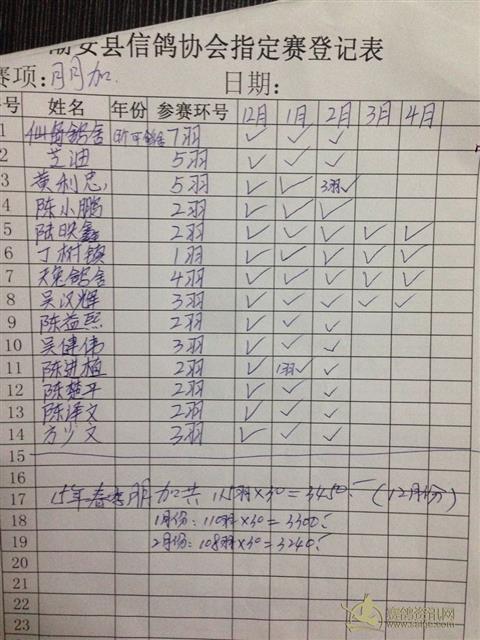 潮安县信鸽协会指定赛登记表
赛项:月月加 日期:
号 姓名 年份 参赛环号 12月 1月 2月 3月 4月
1 鸽舍 7羽 ✓ ✓ ✓
2 芝迪 5羽 ✓ ✓ ✓
3 黄利忠 5羽 ✓ ✓ 3羽✓
4 陈小鹏 2羽 ✓ ✓ ✓
5 陆映鑫 2羽 ✓ ✓ ✓ ✓ ✓
6 丁树镇 1羽 ✓ ✓ ✓ ✓ ✓
7 天兔鸽舍 4羽 ✓ ✓ ✓ ✓ ✓
8 吴汉辉 3羽 ✓ ✓ ✓ ✓ ✓
9 陈益熙 2羽 ✓ ✓ ✓
10 吴健伟 3羽 ✓ ✓ ✓
11 陈进植 2羽 ✓ 1羽✓ ✓
12 陈楚平 2羽 ✓ ✓ ✓
13 陈泽文 2羽 ✓ ✓ ✓
14 方少文 3羽 ✓ ✓ ✓
15
16
17 15年春季月月加共115羽×30=3450 (12月份)
18 1月份:110羽×30=3300
19 2月份:108羽×30=3240
20
21
22
23
赛鸽资讯网
www.saige.com